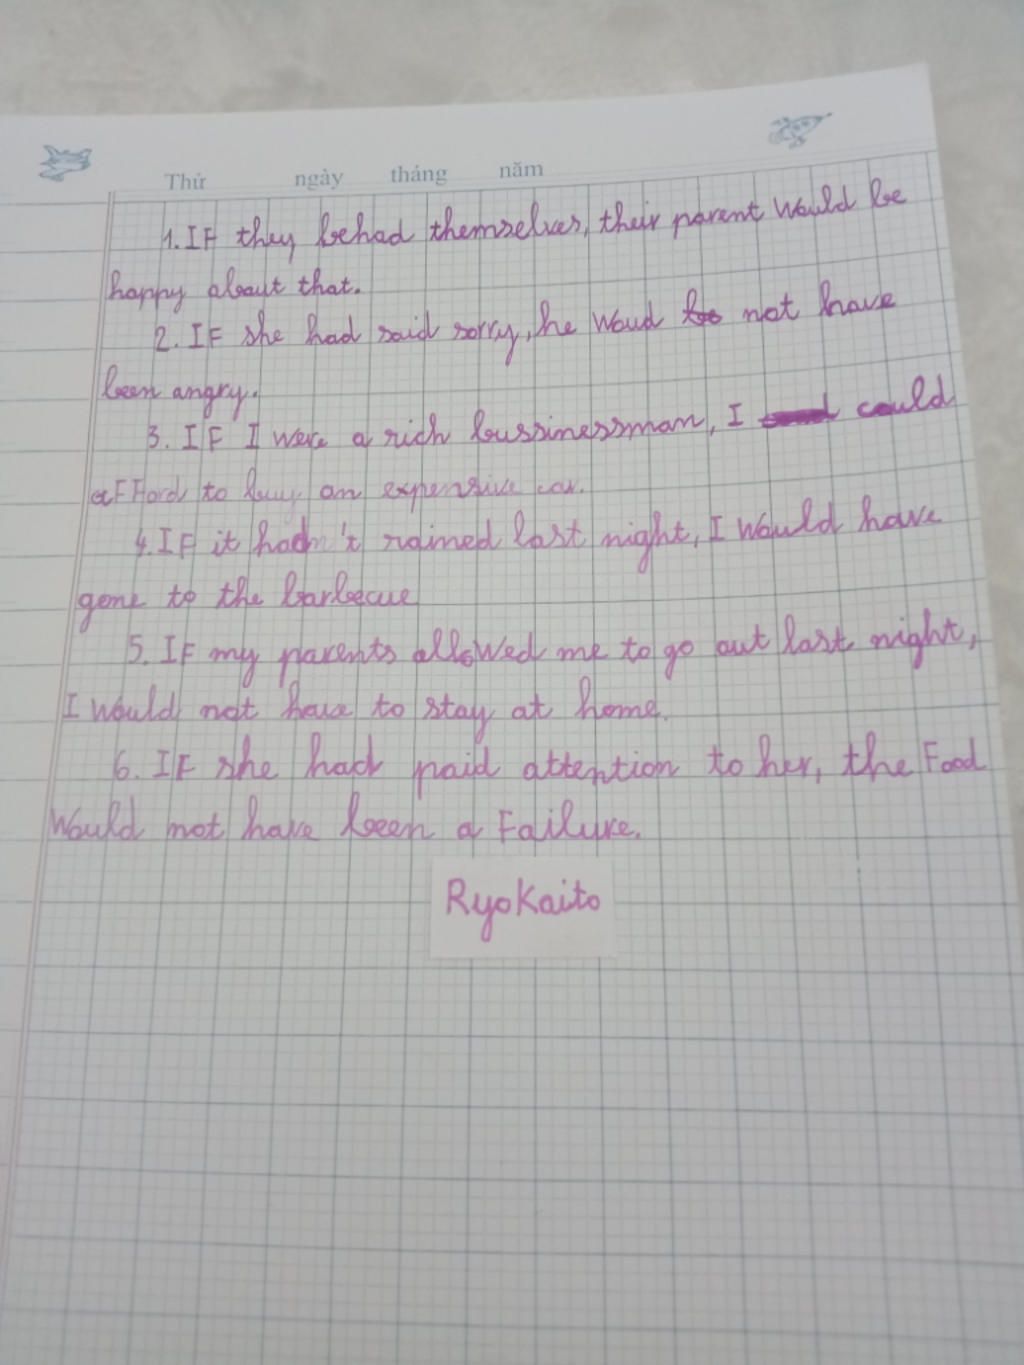 Thứ ngày tháng năm
1. IF they behad themselves, their parent would be
happy about that.
2. IF she had said sorry, he Woud not have
been angry.
3. IF I were a rich bussinessman, I could
aFFord to buy an expensive car.
4. IF it hadn't rained last night, I would have
gone to the barbecue
5. IF my parents allowed me to go out last night,
I would not have to stay at home.
6. IF she had paid attention to her, the Food
Would not have been a Failure.
RyoKaito